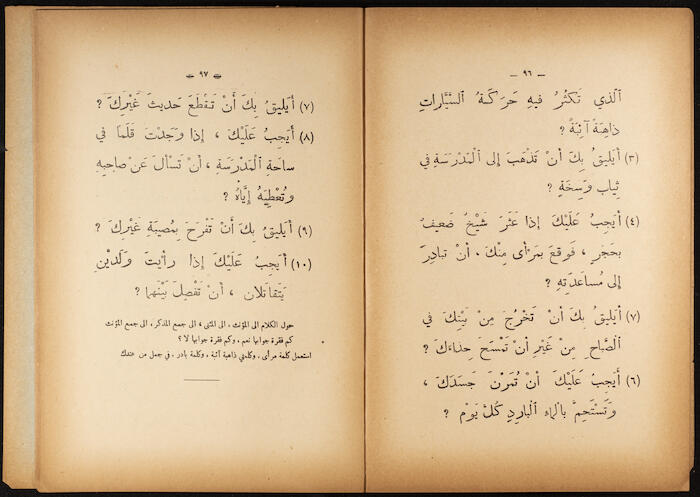 — ٩٦ —
ٱلَّذِي تَكْثُرُ فِيهِ حَرَكَةُ ٱلسَّيَّارَاتِ
ذَاهِبَةً آتِيَةً ؟
(٣) أَيَلِيقُ بِكَ أَنْ تَذْهَبَ إِلَى ٱلْمَدْرَسَةِ فِي
ثِيَابٍ وَسِخَةٍ ؟
(٤) أَيَجِبُ عَلَيْكَ إِذَا عَثَرَ شَيْخٌ ضَعِيفٌ
بِحَجَرٍ ، فَوَقَعَ بِمَرْأَى مِنْكَ ، أَنْ تُبَادِرَ
إِلى مُسَاعَدَتِهِ ؟
(٧) أَيَلِيقُ بِكَ أَنْ تَخْرُجَ مِنْ بَيْتِكَ فِي
ٱلصَّبَاحِ مِنْ غَيْرِ أَنْ تَمْسَحَ حِذَاءَكَ ؟
(٦) أَيَجِبُ عَلَيْكَ أَنْ تُمَرِّنَ جَسَدَكَ ،
وَتَسْتَحِمَّ بِٱلْمَاءِ ٱلْبَارِدِ كُلَّ يَوْمٍ ؟
— ٩٧ —
(٧) أَيَلِيقُ بِكَ أَنْ تَقْطَعَ حَدِيثَ غَيْرِكَ ؟
(٨) أَيَجِبُ عَلَيْكَ ، إِذَا وَجَدْتَ قَلَمًا فِي
سَاحَةِ ٱلْمَدْرَسَةِ ، أَنْ تَسْأَلَ عَنْ صَاحِبِهِ
وَتُعْطِيَهُ إِيَّاهُ ؟
(٩) أَيَلِيقُ بِكَ أَنْ تَفْرَحَ بِمُصِيبَةِ غَيْرِكَ ؟
(١٠) أَيَجِبُ عَلَيْكَ إِذَا رَأَيْتَ وَلَدَيْنِ
يَتَقَاتَلَانِ ، أَنْ تَفْصِلَ بَيْنَهُمَا ؟
حول الكلام الى المؤنث، الى المثنى، الى جمع المذكر، الى جمع المؤنث
كم فقرة جوابها نعم، وكم فقرة جوابها لا ؟
استعمل كلمة مرأى، وكلمتي ذاهبة آتية، وكلمة بادر، في جمل من عندك